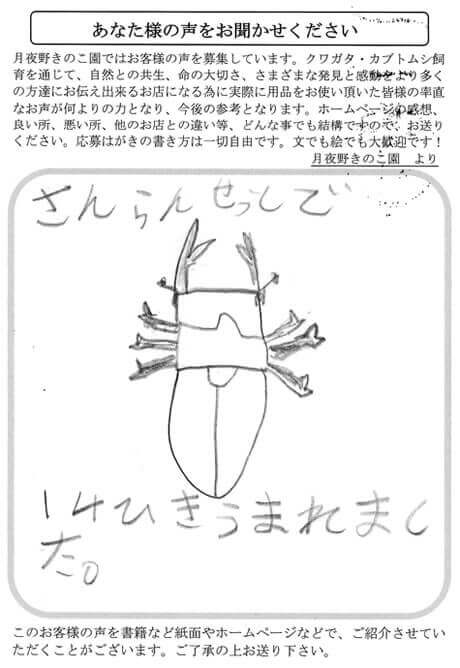 あなた様の声をお聞かせください
月夜野きのこ園ではお客様の声を募集しています。クワガタ・カブトムシ飼
育を通じて、自然との共生、命の大切さ、さまざまな発見と感動をより多く
の方達にお伝え出来るお店になる為に実際に用品をお使い頂いた皆様の率直
なお声が何よりの力となり、今後の参考となります。ホームページの感想、
良い所、悪い所、他のお店との違い等、どんな事でも結構ですので、お送り
ください。応募はがきの書き方は一切自由です。文でも絵でも大歓迎です！
月夜野きのこ園　より
さんらんせっとで
14ひきうまれまし
た。
このお客様の声を書籍など紙面やホームページなどで、ご紹介させてい
ただくことがございます。ご了承の上お送り下さい。